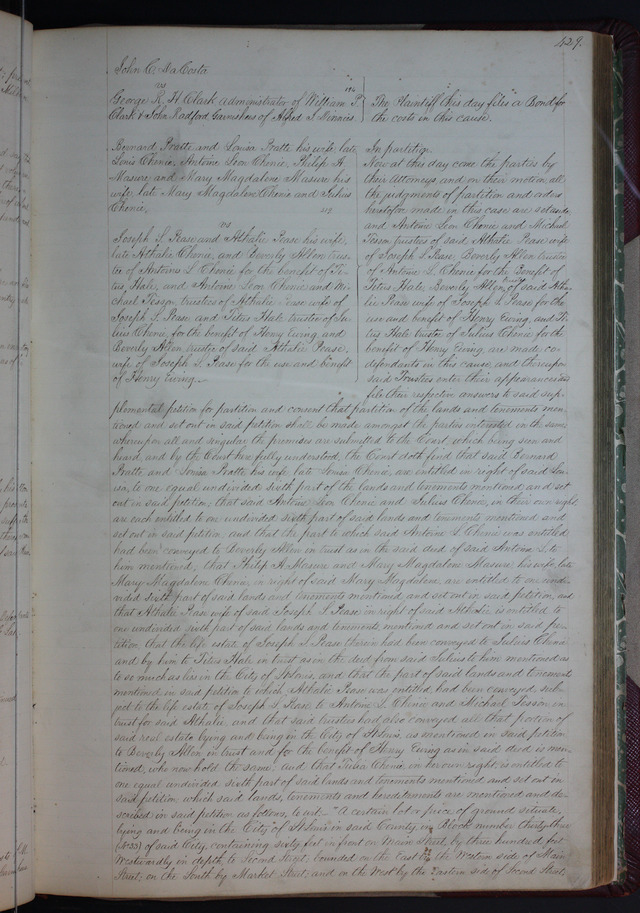 429.
John C. DaCosta
vs
George R. H. Clark administrator of William P.
Clark & John Radford Garnishees of Alfred J.
The Plaintiff this day files a Bond for
the costs in this cause.
Bernard Pratte and Louisa Pratte his wife late
Louisa Chenie, Antoine Leon Chenie, Philip A.
Masure, and Mary Magdalene Masure his
wife, late Mary Magdalene Chenie and Julius
Chenie,
vs
Joseph L. Pease and Athalie Pease his wife,
late Athalie Chenie, and Beverly Allen trus-
tee of Antoine L. Chenie for the benefit of Ti-
tus Hale, and Antoine Leon Chenie and Mi-
chael Tesson, trustees of Athalie Pease wife of
Joseph L. Pease and Titus Hale trustee of Ju-
lius Chenie, for the benefit of Henry Ewing and
Beverly Allen trustee of said Athalie Pease,
wife of Joseph L. Pease for the use and benefit
of Henry Ewing.
In partition.
Now at this day come the parties by
their Attorneys, and on their motion all
the judgment of partition and orders
heretofore made in this case are set aside,
and Antoine Leon Chenie and Michael
Tesson trustees of said Athalie Pease wife
of Joseph L. Pease, Beverly Allen trustee
of Antoine L. Chenie for the benefit of
Titus Hale, Beverly Allen, of said Atha-
lie Pease wife of Joseph L. Pease for the
use and benefit of Henry Ewing, and Ti-
tus Hale trustee of Julius Chenie for the
benefit of Henry Ewing, are made co-
defendants in this cause and thereupon
said Trustees enter their appearances and
file their respective answers to said sup-
plemental petition for partition and consent that partition of the lands and tenements men-
tioned and set out in said petition shall be made amongst the parties interested in the same,
whereupon all and singular the premises are submitted to the Court, which being seen and
heard, and by the Court here fully understood, the Court doth find that said Bernard
Pratte and Louisa Pratte, his wife, late Louisa Chenie, are entitled in right of said Lou-
isa, to one equal undivided sixth part of the lands and tenements mentioned and set
out in said petition; that said Antoine Leon Chenie and Julius Chenie, in their own right,
are each entitled to one undivided sixth part of said lands and tenements mentioned and
set out in said petition and that the part to which said Antoine L. Chenie was entitled
had been conveyed to Beverly Allen in trust as in the said deed of said Antoine L. to
him mentioned; that Philip A. Masure and Mary Magdalene Masure his wife, late
Mary Magdalene Chenie, in right of said Mary Magdalene, are entitled to one undi-
vided sixth part of said lands and tenements mentioned and set out in said petition, and
that Athalie Pease wife of said Joseph L. Pease in right of said Athalie is entitled to
one undivided sixth part of said lands and tenements mentioned and set out in said pe-
tition, that the life estate of Joseph L. Pease therein had been conveyed to Julius Chenie
and by him to Titus Hale in trust as in the deed from said Julius to him mentioned as
to so much as lies in the City of St Louis, and that the part of said lands and tenements
mentioned in said petition to which Athalie Pease was entitled had been conveyed, sub-
ject to the life estate of Joseph L. Pease, to Antoine L. Chenie and Michael Tesson, in
trust for said Athalie, and that said trustees had also conveyed all that portion of
said real estate lying and being in the City of St Louis, as mentioned in said petition
to Beverly Allen, in trust and for the benefit of Henry Ewing as in said deed is men-
tioned, who now hold the same; and that Chenie, in her own right, is entitled to
one equal undivided sixth part of said lands and tenements mentioned and set out in
said petition, which said lands, tenements and hereditaments are mentioned and de-
scribed in said petition as follows, to wit: "A certain lot or piece of ground situate,
lying and being in the City of St Louis in said County, on Block number thirty three
(No 33) of said City, containing sixty feet in front on Main Street, by three hundred feet
Westwardly in depth to Second Street; bounded on the East by the Western side of Main
Street; on the South by Market Street; and on the West by the Eastern side of Second Street,